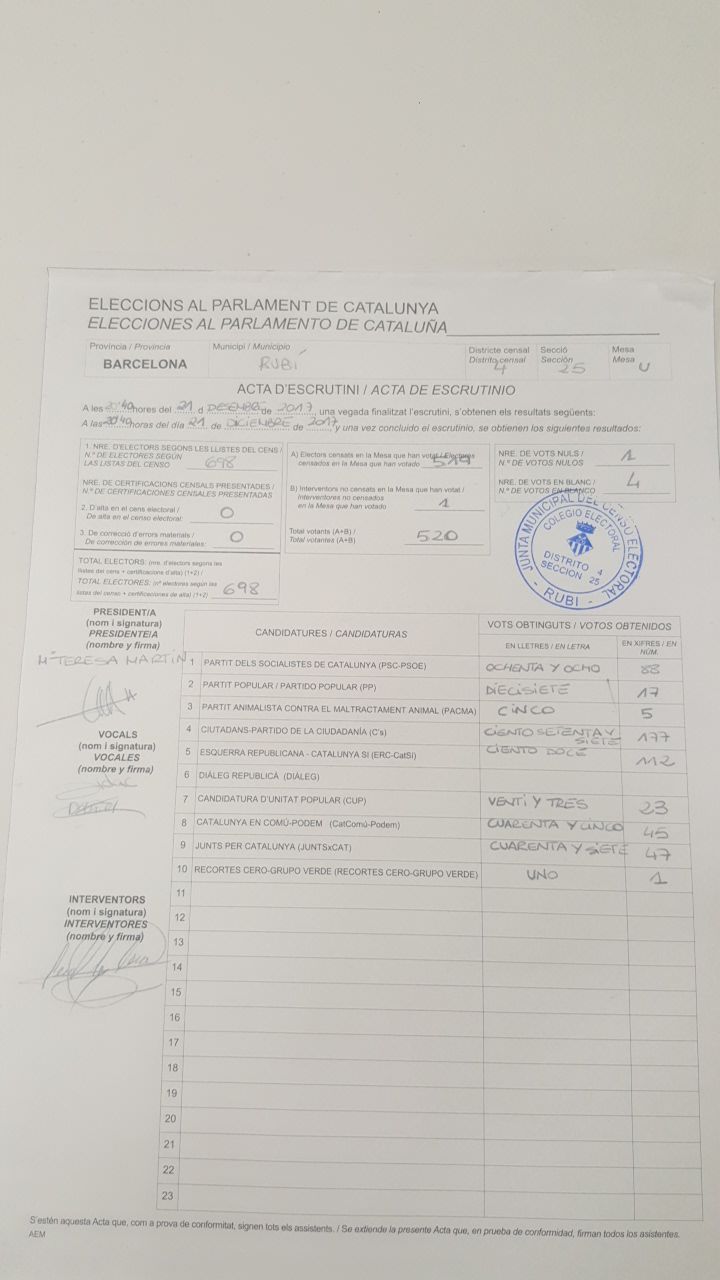 ELECCIONS AL PARLAMENT DE CATALUNYA
ELECCIONES AL PARLAMENTO DE CATALUÑA
Província / Provincia
BARCELONA
Municipi / Municipio
RUBÍ
Districte censal
Distrito censal
4
Secció
Sección
25
Mesa
Mesa
U
ACTA D'ESCRUTINI / ACTA DE ESCRUTINIO
A les 20:40 hores del 21 d DESEMBRE de 2017, una vegada finalitzat l'escrutini, s'obtenen els resultats següents:
A las 20:40 horas del día 21 de DICIEMBRE de 2017 y una vez concluido el escrutinio, se obtienen los siguientes resultados:
1. NRE. D'ELECTORS SEGONS LES LLISTES DEL CENS /
N.º DE ELECTORES SEGÚN
LAS LISTAS DEL CENSO
698
NRE. DE CERTIFICACIONS CENSALS PRESENTADES /
N.º DE CERTIFICACIONES CENSALES PRESENTADAS
2. D'alta en el cens electoral /
De alta en el censo electoral:
0
3. De correcció d'errors materials /
De corrección de errores materiales:
0
TOTAL ELECTORS: (nre. d'electors segons les
llistes del cens + certificacions d'alta) (1+2) /
TOTAL ELECTORES: (nº electores según las
listas del censo + certificaciones de alta) (1+2)
698
A) Electors censats en la Mesa que han votat / Electores
censados en la Mesa que han votado
519
B) Interventors no censats en la Mesa que han votat /
Interventores no censados
en la Mesa que han votado
1
Total votants (A+B) /
Total votantes (A+B)
520
NRE. DE VOTS NULS /
N.º DE VOTOS NULOS
1
NRE. DE VOTS EN BLANC /
N.º DE VOTOS EN BLANCO
4
JUNTA MUNICIPAL DEL CENSO ELECTORAL
COLEGIO ELECTORAL
DISTRITO 4
SECCION 25
- RUBI -
PRESIDENT/A
(nom i signatura)
PRESIDENTE/A
(nombre y firma)
Mª TERESA MARTIN
VOCALS
(nom i signatura)
VOCALES
(nombre y firma)
INTERVENTORS
(nom i signatura)
INTERVENTORES
(nombre y firma)
CANDIDATURES / CANDIDATURAS
VOTS OBTINGUTS / VOTOS OBTENIDOS
EN LLETRES / EN LETRA
EN XIFRES / EN NÚM.
1 PARTIT DELS SOCIALISTES DE CATALUNYA (PSC-PSOE) OCHENTA Y OCHO 88
2 PARTIT POPULAR / PARTIDO POPULAR (PP) DIECISIETE 17
3 PARTIT ANIMALISTA CONTRA EL MALTRACTAMENT ANIMAL (PACMA) CINCO 5
4 CIUTADANS-PARTIDO DE LA CIUDADANÍA (C's) CIENTO SETENTA Y SIETE 177
5 ESQUERRA REPUBLICANA - CATALUNYA SI (ERC-CatSI) CIENTO DOCE 112
6 DIÀLEG REPUBLICÀ (DIÀLEG)
7 CANDIDATURA D'UNITAT POPULAR (CUP) VENTI Y TRES 23
8 CATALUNYA EN COMÚ-PODEM (CatComú-Podem) CUARENTA Y CINCO 45
9 JUNTS PER CATALUNYA (JUNTSxCAT) CUARENTA Y SIETE 47
10 RECORTES CERO-GRUPO VERDE (RECORTES CERO-GRUPO VERDE) UNO 1
11
12
13
14
15
16
17
18
19
20
21
22
23
S'estén aquesta Acta que, com a prova de conformitat, signen tots els assistents. / Se extiende la presente Acta que, en prueba de conformidad, firman todos los asistentes.
AEM